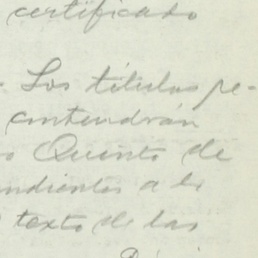 certificado
Los títulos pe-
contendrán
o Quinto de
ndientes a la
texto de las